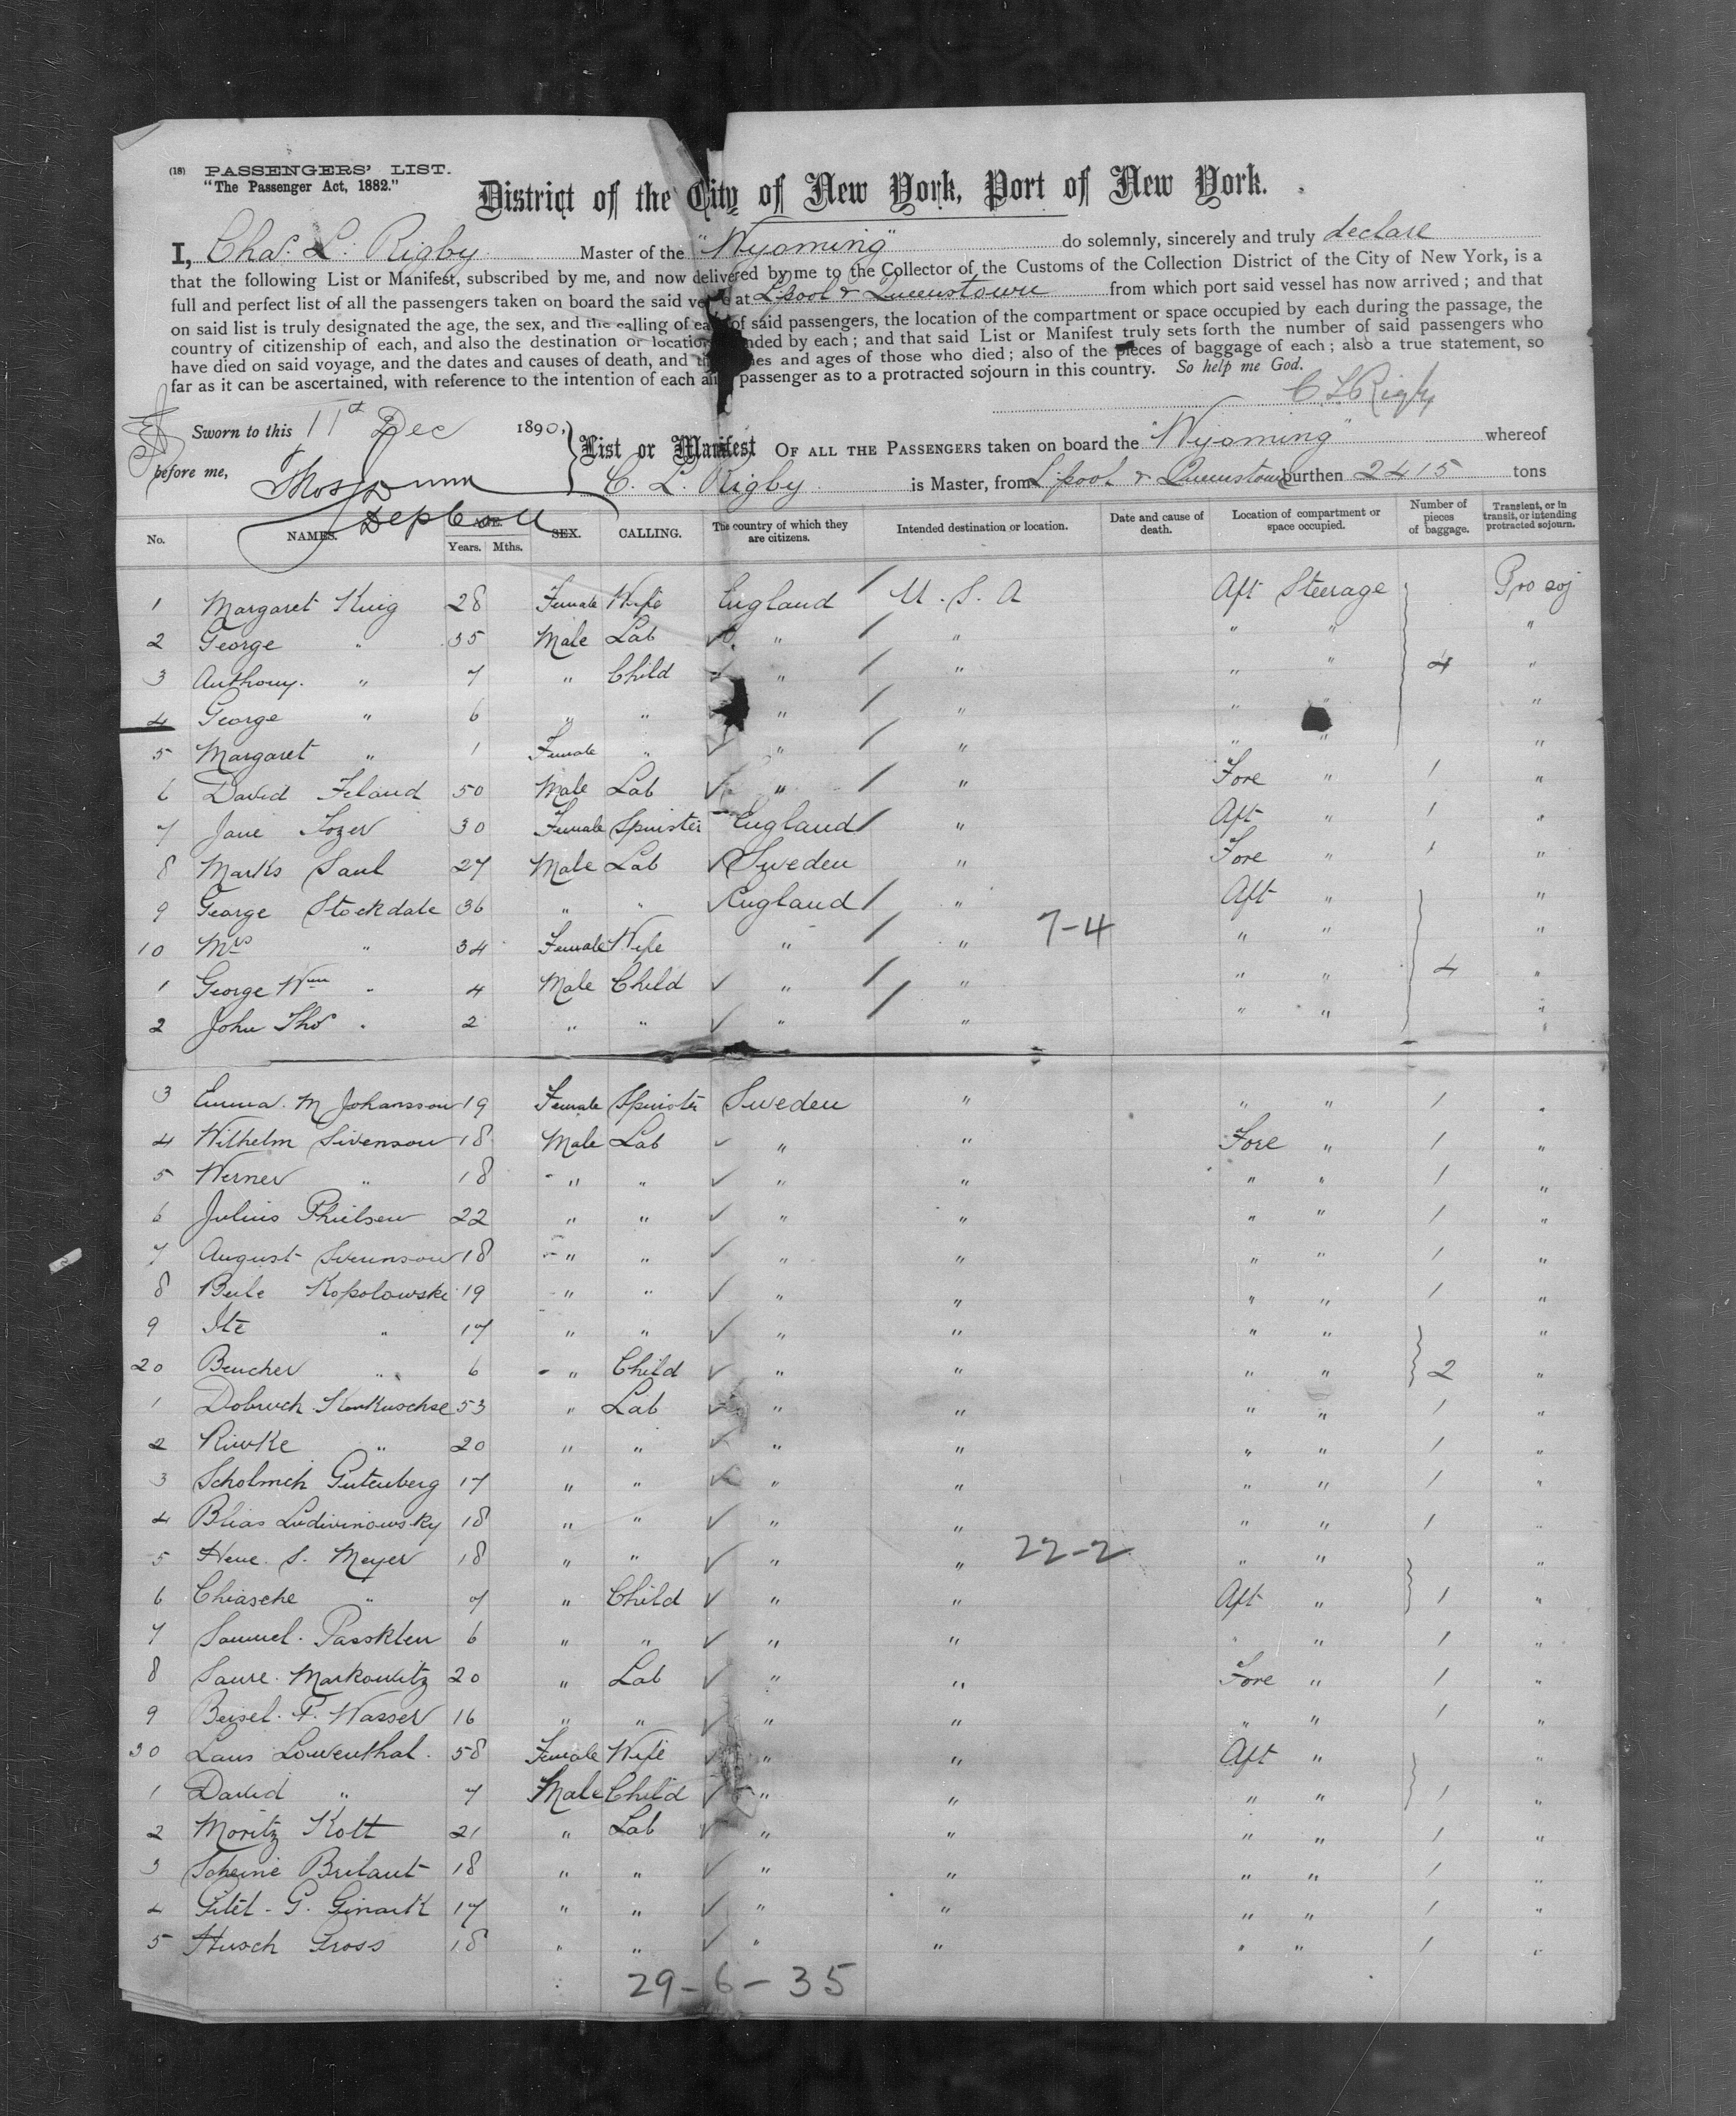 (18) PASSENGERS' LIST.
"The Passenger Act, 1882."
District of the City of New York, Port of New York.
I, Chas. L. Rigby Master of the "Wyoming" do solemnly, sincerely and truly declare
that the following List or Manifest, subscribed by me, and now delivered by me to the Collector of the Customs of the Collection District of the City of New York, is a
full and perfect list of all the passengers taken on board the said at L'pool & Queenstown from which port said vessel has now arrived; and that
on said list is truly designated the age, the sex, and the calling of of said passengers, the location of the compartment or space occupied by each during the passage, the
country of citizenship of each, and also the destination or location by each; and that said List or Manifest truly sets forth the number of said passengers who
have died on said voyage, and the dates and causes of death, and and ages of those who died; also of the pieces of baggage of each; also a true statement, so
far as it can be ascertained, with reference to the intention of each passenger as to a protracted sojourn in this country. So help me God.
C. L. Rigby
Sworn to this 11th Dec 1890,
before me,
List or Manifest OF ALL THE PASSENGERS taken on board the "Wyoming" whereof
C. L. Rigby is Master, from L'pool & Queenstown burthen 2415 tons
Thos Dunn
Dep Coll
No. NAMES. AGE. Years. Mths. SEX. CALLING. The country of which they are citizens. Intended destination or location. Date and cause of death. Location of compartment or space occupied. Number of pieces of baggage. Transient, or in transit, or intending protracted sojourn.
1 Margaret King 28 Female Wife England / U. S. A Aft Steerage Pro soj
2 George " 35 Male Lab " / " " " "
3 Anthony " 7 " Child " / " " " 4 "
4 George " 6 " " " / " " " "
5 Margaret " 1 Female " ✓ " / " " " "
6 David 50 Male Lab ✓ " / " Fore " 1 "
7 Jane Tozer 30 Female Spinster England / " Aft " 1 "
8 Marks Saul 27 Male Lab ✓ Sweden " Fore " 1 "
9 George Stockdale 36 " " ✓ England / " Aft " "
10 Mrs " 34 Female Wife " / " 7-4 " " "
1 George Wm " 4 Male Child ✓ " / " " " 4 "
2 John Thos " 2 " " ✓ " / " " " "
3 Emma. M Johansson 19 Female Spinster Sweden " " " 1 "
4 Wilhelm Sivenson 18 Male Lab ✓ " " Fore " 1 "
5 Werner " 18 " " ✓ " " " " 1 "
6 Julius 22 " " ✓ " " " " 1 "
7 August 18 " " ✓ " " " " 1 "
8 Beile Kopolowski 19 " " ✓ " " " " 1 "
9 Ite " 17 " " ✓ " " " " "
20 Bencher " 6 " Child ✓ " " " " 2 "
1 Dobruch 53 " Lab ✓ " " " " 1 "
2 Riwke " 20 " " ✓ " " " " 1 "
3 Scholmeh Gutenberg 17 " " ✓ " " " " 1 "
4 Blias Ludwinowsky 18 " " ✓ " " " " 1 "
5 Hene. S. Meyer 18 " " ✓ " " 22-2 " " "
6 Chiasche " 7 " Child ✓ " " Aft " 1 "
7 Samuel. 6 " " ✓ " " " " 1 "
8 Saure. Markowitz 20 " Lab ✓ " " Fore " 1 "
9 Beisel. F. Wasser 16 " " ✓ " " " " 1 "
30 Laus Lowenthal. 58 Female Wife ✓ " " Aft " "
1 David " 7 Male Child ✓ " " " " 1 "
2 Moritz Kott 21 " Lab ✓ " " " " 1 "
3 Scheine Brilant 18 " " ✓ " " " " 1 "
4 G. Ginark 17 " " ✓ " " " " 1 "
5 Husch Gross 18 " " ✓ " " " " 1 "
29-6-35